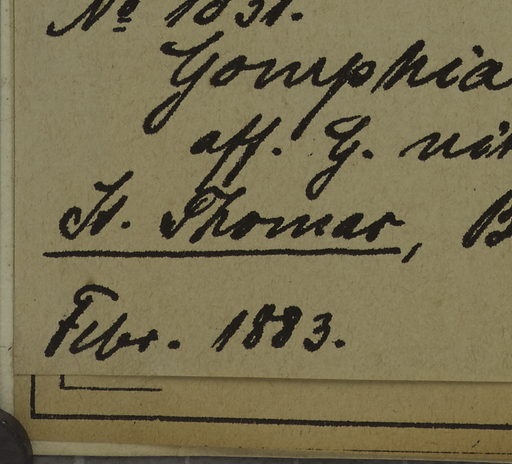 No 1831.
Gomphia
aff. G. nit
St. Thomas, B
Febr. 1883.